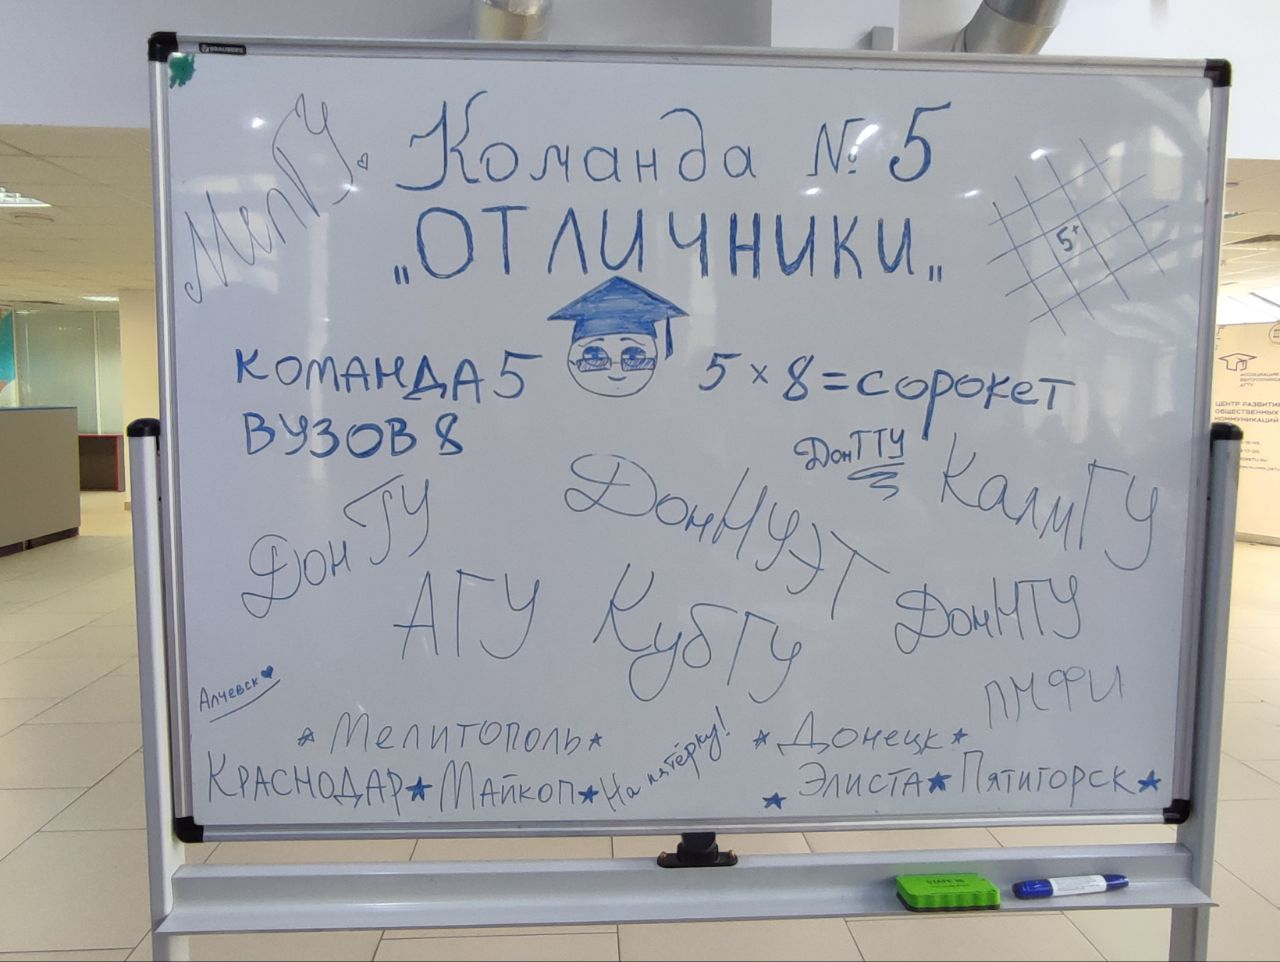 BRAUBERG
МелГУ
Команда № 5
„ОТЛИЧНИКИ„
5+
КОМАНДА 5
ВУЗОВ 8
5 × 8 = сорокет
ДонГТУ
КалмГУ
ДонГУ
ДонНУЭТ
АГУ
КубГУ
ДонНТУ
ПМФИ
Алчевск
Мелитополь
Донецк
Краснодар
Майкоп
На пятёрку!
Элиста
Пятигорск
АССОЦИАЦИЯ
ВЫПУСКНИКОВ
ЦЕНТР РАЗВИТИЯ
ОБЩЕСТВЕННЫХ
КОММУНИКАЦИЙ